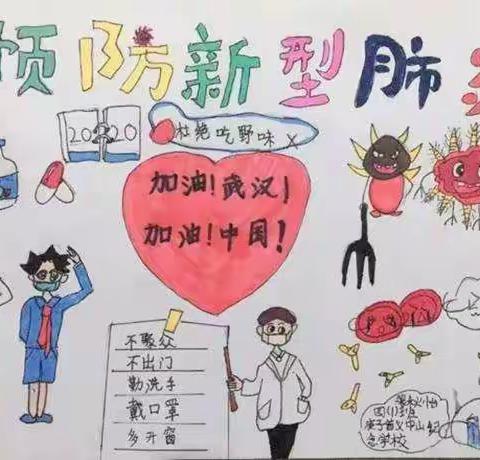 预防新型肺
2020
杜绝吃野味
加油!武汉!
加油!中国!
不聚众
不出门
勤洗手
戴口罩
多开窗
四(1)班
念学校